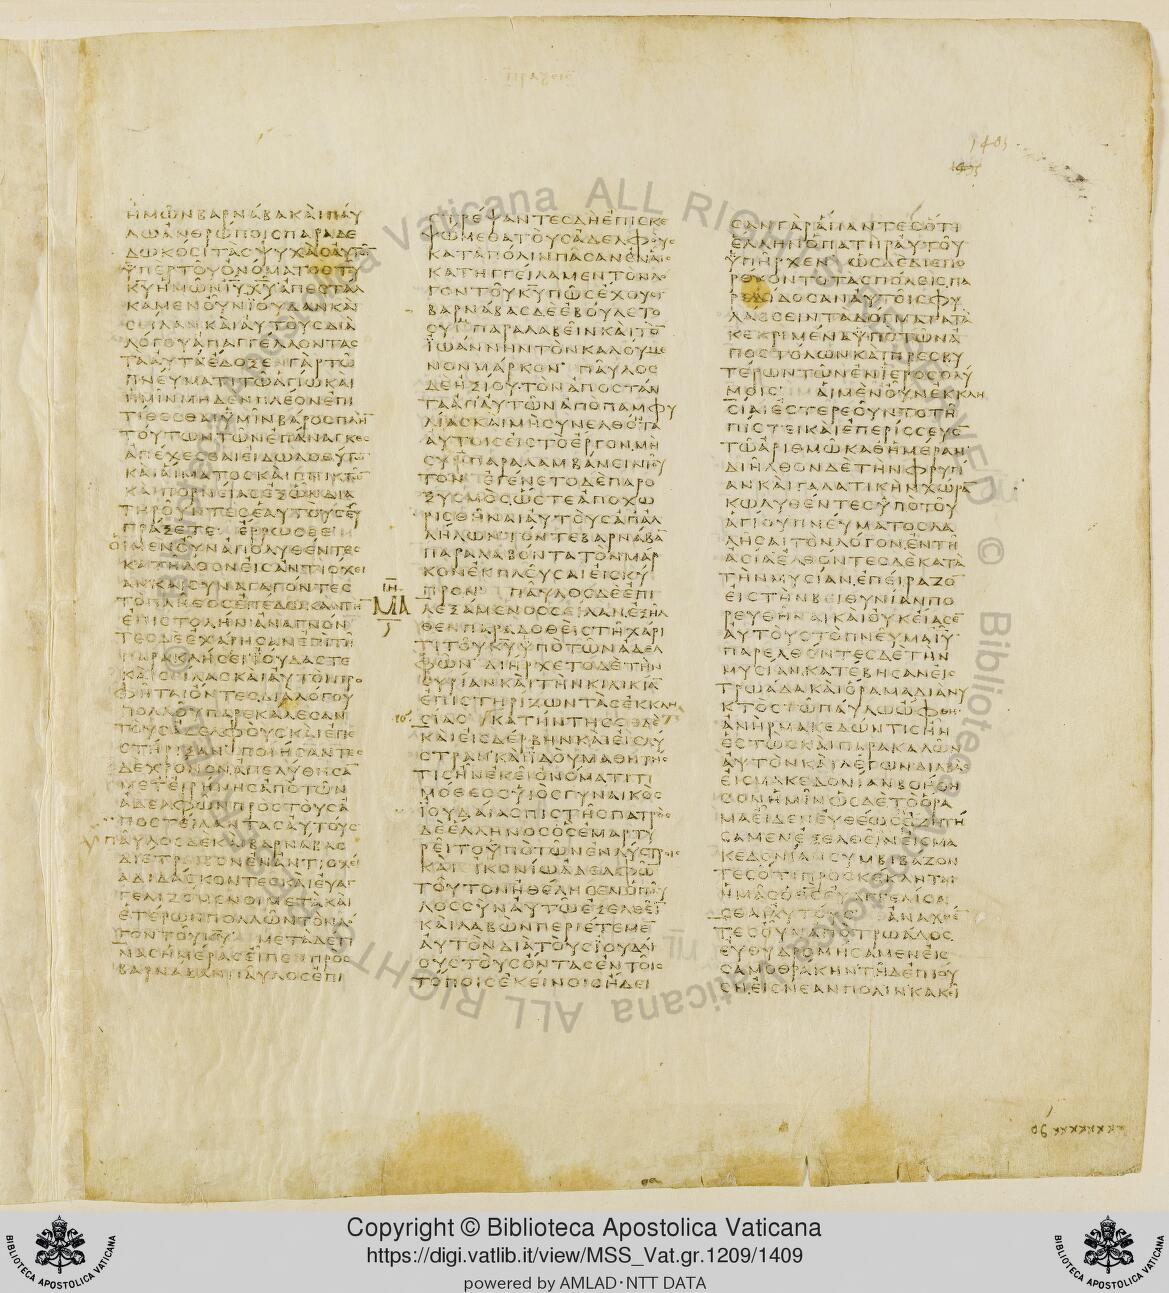 ΗΜΩΝΒΑΡΝΑΒΑΚΑΙΠΑΥ
ΛΩΑΝΘΡΩΠΟΙΣΠΑΡΑΔΕ
ΔΩΚΟΣΙΤΑΣΨΥΧΑΣΑΥΤΩ
ΥΠΕΡΤΟΥΟΝΟΜΑΤΟΣΤΥ
ΚΥΗΜΩΝΙΥΧΥΑΠΕΣΤΑΛ
ΚΑΜΕΝΟΥΝΙΟΥΔΑΝΚΑΙ
ΣΕΙΛΑΝΚΑΙΑΥΤΟΥΣΔΙΑ
ΛΟΓΟΥΑΠΑΓΓΕΛΛΟΝΤΑΣ
ΤΑΑΥΤΑΕΔΟΞΕΝΓΑΡΤΩ
ΠΝΕΥΜΑΤΙΤΩΑΓΙΩΚΑΙ
ΗΜΙΝΜΗΔΕΝΠΛΕΟΝΕΠΙ
ΤΙΘΕΣΘΑΙΥΜΙΝΒΑΡΟΣΠΛΗ
ΤΟΥΤΩΝΤΩΝΕΠΑΝΑΓΚΕΣ
ΑΠΕΧΕΣΘΑΙΕΙΔΩΛΟΘΥΤΩ
ΚΑΙΑΙΜΑΤΟΣΚΑΙΠΝΙΚΤΩ
ΚΑΙΠΟΡΝΕΙΑΣΕΞΩΝΔΙΑ
ΤΗΡΟΥΝΤΕΣΕΑΥΤΟΥΣΕΥ
ΠΡΑΞΕΤΕ ΕΡΡΩΣΘΕ
ΟΙΜΕΝΟΥΝΑΠΟΛΥΘΕΝΤΕΣ
ΚΑΤΗΛΘΟΝΕΙΣΑΝΤΙΟΧΕΙ
ΑΝΚΑΙΣΥΝΑΓΑΓΟΝΤΕΣ
ΤΟΠΛΗΘΟΣΕΠΕΔΩΚΑΝΤΗ
ΕΠΙΣΤΟΛΗΝΑΝΑΓΝΟΝ
ΤΕΣΔΕΕΧΑΡΗΣΑΝΕΠΙΤΗ
ΠΑΡΑΚΛΗΣΕΙΙΟΥΔΑΣΤΕ
ΚΑΙΣΙΛΑΣΚΑΙΑΥΤΟΙΠΡΟ
ΦΗΤΑΙΟΝΤΕΣΔΙΑΛΟΓΟΥ
ΠΟΛΛΟΥΠΑΡΕΚΑΛΕΣΑΝ
ΤΟΥΣΑΔΕΛΦΟΥΣΚΑΙΕΠΕ
ΣΤΗΡΙΞΑΝΠΟΙΗΣΑΝΤΕΣ
ΔΕΧΡΟΝΟΝΑΠΕΛΥΘΗΣΑ
ΜΕΤΕΙΡΗΝΗΣΑΠΟΤΩΝ
ΑΔΕΛΦΩΝΠΡΟΣΤΟΥΣΑ
ΠΟΣΤΕΙΛΑΝΤΑΣΑΥΤΟΥΣ
ΠΑΥΛΟΣΔΕΚΑΙΒΑΡΝΑΒΑΣ
ΔΙΕΤΡΙΒΟΝΕΝΑΝΤΙΟΧΕΙ
ΑΔΙΔΑΣΚΟΝΤΕΣΚΑΙΕΥΑΓ
ΓΕΛΙΖΟΜΕΝΟΙΜΕΤΑΚΑΙ
ΕΤΕΡΩΝΠΟΛΛΩΝΤΟΝΛΟ
ΓΟΝΤΟΥΚΥ ΜΕΤΑΔΕΤΙ
ΝΑΣΗΜΕΡΑΣΕΙΠΕΝΠΡΟΣ
ΒΑΡΝΑΒΑΝΠΑΥΛΟΣΕΠΙ
ΣΤΡΕΨΑΝΤΕΣΔΗΕΠΙΣΚΕ
ΨΩΜΕΘΑΤΟΥΣΑΔΕΛΦΟΥΣ
ΚΑΤΑΠΟΛΙΝΠΑΣΑΝΕΝΑΙΣ
ΚΑΤΗΓΓΕΙΛΑΜΕΝΤΟΝΛΟ
ΓΟΝΤΟΥΚΥΠΩΣΕΧΟΥΣΙ
ΒΑΡΝΑΒΑΣΔΕΕΒΟΥΛΕΤΟ
ΣΥΜΠΑΡΑΛΑΒΕΙΝΚΑΙΤΟ
ΙΩΑΝΗΝΤΟΝΚΑΛΟΥΜΕ
ΝΟΝΜΑΡΚΟΝ ΠΑΥΛΟΣ
ΔΕΗΞΙΟΥΤΟΝΑΠΟΣΤΑΝ
ΤΑΑΠΑΥΤΩΝΑΠΟΠΑΜΦΥ
ΛΙΑΣΚΑΙΜΗΣΥΝΕΛΘΟΝΤΑ
ΑΥΤΟΙΣΕΙΣΤΟΕΡΓΟΝΜΗ
ΣΥΜΠΑΡΑΛΑΜΒΑΝΕΙΝΤΟΥ
ΤΟΝ ΕΓΕΝΕΤΟΔΕΠΑΡΟ
ΞΥΣΜΟΣΩΣΤΕΑΠΟΧΩ
ΡΙΣΘΗΝΑΙΑΥΤΟΥΣΑΠΑΛ
ΛΗΛΩΝΤΟΝΤΕΒΑΡΝΑΒΑ
ΠΑΡΑΛΑΒΟΝΤΑΤΟΝΜΑΡ
ΚΟΝΕΚΠΛΕΥΣΑΙΕΙΣΚΥ
ΠΡΟΝ ΠΑΥΛΟΣΔΕΕΠΙ
ΛΕΞΑΜΕΝΟΣΣΕΙΛΑΝΕΞΗΛ
ΘΕΝΠΑΡΑΔΟΘΕΙΣΤΗΧΑΡΙ
ΤΙΤΟΥΚΥΥΠΟΤΩΝΑΔΕΛ
ΦΩΝ ΔΙΗΡΧΕΤΟΔΕΤΗΝ
ΣΥΡΙΑΝΚΑΙΤΗΝΚΙΛΙΚΙΑ
ΕΠΙΣΤΗΡΙΖΩΝΤΑΣΕΚΚΛΗ
ΣΙΑΣ ΚΑΤΗΝΤΗΣΕΔΕ
ΚΑΙΕΙΣΔΕΡΒΗΝΚΑΙΕΙΣΛΥ
ΣΤΡΑΝΚΑΙΙΔΟΥΜΑΘΗΤΗΣ
ΤΙΣΗΝΕΚΕΙΟΝΟΜΑΤΙΤΙ
ΜΟΘΕΟΣΥΙΟΣΓΥΝΑΙΚΟΣ
ΙΟΥΔΑΙΑΣΠΙΣΤΗΣΠΑΤΡΟΣ
ΔΕΕΛΛΗΝΟΣΟΣΕΜΑΡΤΥ
ΡΕΙΤΟΥΠΟΤΩΝΕΝΛΥΣΤΡΟΙΣ
ΚΑΙΕΙΚΟΝΙΩΑΔΕΛΦΩ
ΤΟΥΤΟΝΗΘΕΛΗΣΕΝΟΠΑΥ
ΛΟΣΣΥΝΑΥΤΩΕΞΕΛΘΕΙ
ΚΑΙΛΑΒΩΝΠΕΡΙΕΤΕΜΕ
ΑΥΤΟΝΔΙΑΤΟΥΣΙΟΥΔΑΙ
ΟΥΣΤΟΥΣΟΝΤΑΣΕΝΤΟΙΣ
ΤΟΠΟΙΣΕΚΕΙΝΟΙΣΗΔΕΙ
ΣΑΝΓΑΡΑΠΑΝΤΕΣΟΤΙ
ΕΛΛΗΝΟΠΑΤΗΡΑΥΤΟΥ
ΥΠΗΡΧΕΝ ΩΣΔΕΔΙΕΠΟ
ΡΕΥΟΝΤΟΤΑΣΠΟΛΕΙΣΠΑ
ΡΕΔΙΔΟΣΑΝΑΥΤΟΙΣΦΥ
ΛΑΣΣΕΙΝΤΑΔΟΓΜΑΤΑΤΑ
ΚΕΚΡΙΜΕΝΑΥΠΟΤΩΝΑ
ΠΟΣΤΟΛΩΝΚΑΙΠΡΕΣΒΥ
ΤΕΡΩΝΤΩΝΕΝΙΕΡΟΣΟΛΥ
ΜΟΙΣ ΑΙΜΕΝΟΥΝΕΚΚΛΗ
ΣΙΑΙΕΣΤΕΡΕΟΥΝΤΟΤΗ
ΠΙΣΤΕΙΚΑΙΕΠΕΡΙΣΣΕΥΟ
ΤΩΑΡΙΘΜΩΚΑΘΗΜΕΡΑΝ
ΔΙΗΛΘΟΝΔΕΤΗΝΦΡΥΓΙ
ΑΝΚΑΙΓΑΛΑΤΙΚΗΝΧΩΡΑ
ΚΩΛΥΘΕΝΤΕΣΥΠΟΤΟΥ
ΑΓΙΟΥΠΝΕΥΜΑΤΟΣΛΑ
ΛΗΣΑΙΤΟΝΛΟΓΟΝΕΝΤΗ
ΑΣΙΑΕΛΘΟΝΤΕΣΔΕΚΑΤΑ
ΤΗΝΜΥΣΙΑΝΕΠΕΙΡΑΖΟ
ΕΙΣΤΗΝΒΕΙΘΥΝΙΑΝΠΟ
ΡΕΥΘΗΝΑΙΚΑΙΟΥΚΕΙΑΣΕ
ΑΥΤΟΥΣΤΟΠΝΕΥΜΑΙΥ
ΠΑΡΕΛΘΟΝΤΕΣΔΕΤΗΝ
ΜΥΣΙΑΝΚΑΤΕΒΗΣΑΝΕΙΣ
ΤΡΩΑΔΑΚΑΙΟΡΑΜΑΔΙΑΝΥ
ΚΤΟΣΤΩΠΑΥΛΩΩΦΘΗ
ΑΝΗΡΜΑΚΕΔΩΝΤΙΣΗΝ
ΕΣΤΩΣΚΑΙΠΑΡΑΚΑΛΩΝ
ΑΥΤΟΝΚΑΙΛΕΓΩΝΔΙΑΒΑΣ
ΕΙΣΜΑΚΕΔΟΝΙΑΝΒΟΗΘΗ
ΣΟΝΗΜΙΝΩΣΔΕΤΟΟΡΑ
ΜΑΕΙΔΕΝΕΥΘΕΩΣΕΖΗΤΗ
ΣΑΜΕΝΕΞΕΛΘΕΙΝΕΙΣΜΑ
ΚΕΔΟΝΙΑΝΣΥΜΒΙΒΑΖΟΝ
ΤΕΣΟΤΙΠΡΟΣΚΕΚΛΗΤΑΙ
ΗΜΑΣΟΘΣΕΥΑΓΓΕΛΙΣΑ
ΣΘΑΙΑΥΤΟΥΣ ΑΝΑΧΘΕ
ΤΕΣΟΥΝΑΠΟΤΡΩΑΔΟΣ
ΕΥΘΥΔΡΟΜΗΣΑΜΕΝΕΙΣ
ΣΑΜΟΘΡΑΚΗΝΤΗΔΕΕΠΙΟΥ
ΣΗΕΙΣΝΕΑΝΠΟΛΙΝΚΑΚΕΙ
Copyright © Biblioteca Apostolica Vaticana
https://digi.vatlib.it/view/MSS_Vat.gr.1209/1409
powered by AMLAD·NTT DATA
BIBLIOTECA APOSTOLICA VATICANA
BIBLIOTECA APOSTOLICA VATICANA